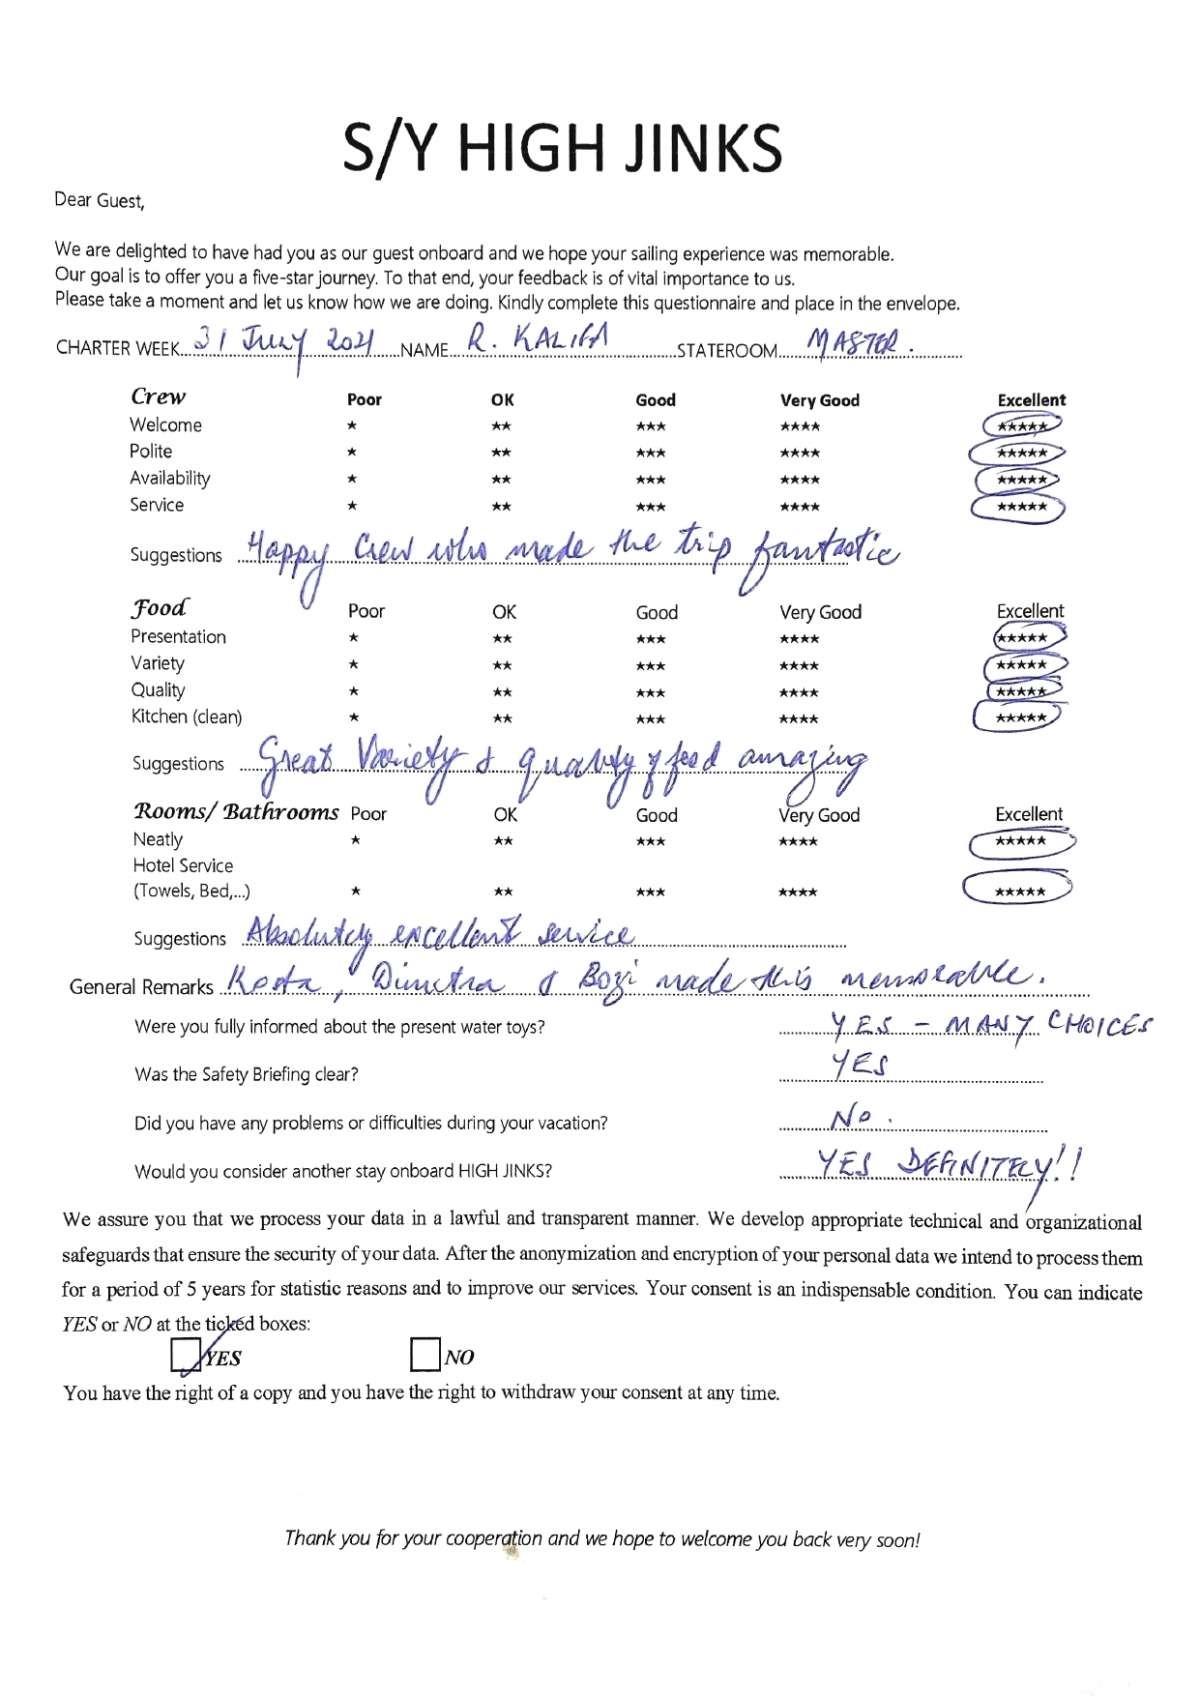 S/Y HIGH JINKS
Dear Guest,
We are delighted to have had you as our guest onboard and we hope your sailing experience was memorable.
Our goal is to offer you a five-star journey. To that end, your feedback is of vital importance to us.
Please take a moment and let us know how we are doing. Kindly complete this questionnaire and place in the envelope.
CHARTER WEEK 31 July 2021 NAME R. STATEROOM MASTER.
Crew Poor OK Good Very Good Excellent
Welcome ★ ★★ ★★★ ★★★★ ★★★★★
Polite ★ ★★ ★★★ ★★★★ ★★★★★
Availability ★ ★★ ★★★ ★★★★ ★★★★★
Service ★ ★★ ★★★ ★★★★ ★★★★★
Suggestions Happy Crew who made the trip fantastic
Food Poor OK Good Very Good Excellent
Presentation ★ ★★ ★★★ ★★★★ ★★★★★
Variety ★ ★★ ★★★ ★★★★ ★★★★★
Quality ★ ★★ ★★★ ★★★★ ★★★★★
Kitchen (clean) ★ ★★ ★★★ ★★★★ ★★★★★
Suggestions Great Variety & quality of food amazing
Rooms/ Bathrooms Poor OK Good Very Good Excellent
Neatly ★ ★★ ★★★ ★★★★ ★★★★★
Hotel Service
(Towels, Bed,...) ★ ★★ ★★★ ★★★★ ★★★★★
Suggestions Absolutely excellent service
General Remarks Kosta, Dimitra & Bozi made this memorable.
Were you fully informed about the present water toys? YES - MANY CHOICES
Was the Safety Briefing clear? YES
Did you have any problems or difficulties during your vacation? No.
Would you consider another stay onboard HIGH JINKS? YES DEFINITELY!!
We assure you that we process your data in a lawful and transparent manner. We develop appropriate technical and organizational
safeguards that ensure the security of your data. After the anonymization and encryption of your personal data we intend to process them
for a period of 5 years for statistic reasons and to improve our services. Your consent is an indispensable condition. You can indicate
YES or NO at the ticked boxes:
YES NO
You have the right of a copy and you have the right to withdraw your consent at any time.
Thank you for your cooperation and we hope to welcome you back very soon!